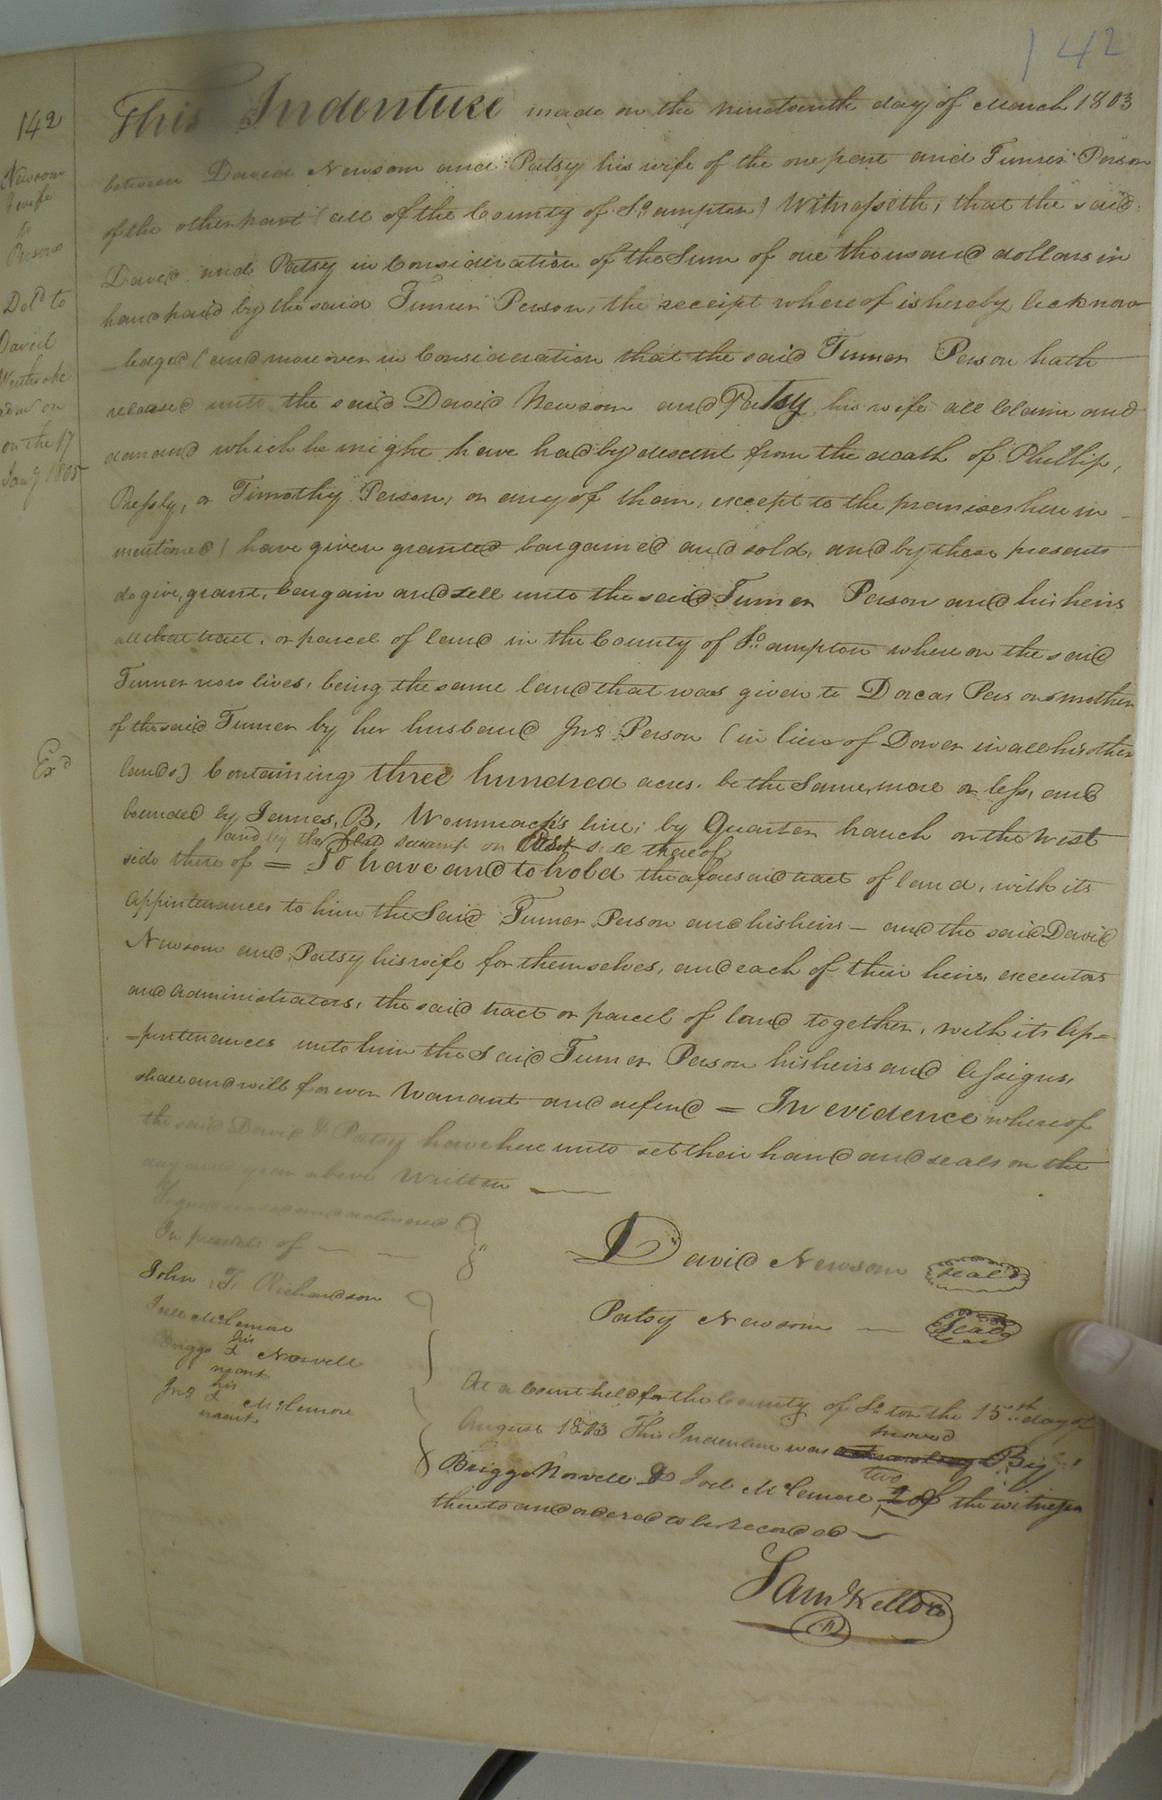 142
142
Newsom
& wife
to
Person
Deld to
David
Westbroke
on the 17
Jany 1805
Exd
This Indenture made on the nineteenth day of March 1803
between David Newsom and Patsy his wife of the one part and Turner Person
of the other part (all of the County of So ampton) Witnesseth, that the said
David and Patsy in Consideration of the Sum of one thousand dollars in
hand paid by the said Turner Person, the receipt whereof is hereby acknow
-ledged (and moreover in Consideration that the said Turner Person hath
released unto the said David Newsom and Patsy his wife all Claim and
demand which he might have had by descent from the death of Phillip,
Presly, or Timothy Person, or any of them, except to the premises herein
mentioned) have given granted bargained and sold, and by these presents
do give, grant, bargain and sell unto the said Turner Person and his heirs
all that tract, or parcel of land in the County of So ampton where on the said
Turner now lives, being the same land that was given to Dorcas Person mother
of the said Turner by her husband Jno Person (in lieu of Dower in all his other
lands) Containing three hundred acres, be the Same, more or less, and
bounded by James, B, Wommack's line, by Quarter branch on the West
and by the swamp on East side thereof
side there of = To have and to hold the aforesaid tract of land, with its
Appurtenances to him the Said Turner Person and his heirs - and the said David
Newsom and Patsy his wife for themselves, and each of their heirs, executors
and administrators, the said tract or parcel of land together, with its Ap=
=purtenances unto him the Said Turner Person his heirs and Assigns,
shall and will forever Warrant and defend = In evidence whereof
the said David & Patsy have here unto set their hand and seals on the
day and year above Written
Signed sealed and delivered
In presents of
John T. Richardson
Joel McLemore
his
Briggs + Norvell
mark
his
Jno + McLemore
mark
David Newsom seal
Patsy Newsom Seal
At a Court held for the County of So ton the 15th day of
August 1803 This Indenture was proved By
Briggs Norvell & Joel McLemore two of the witnesses
thereto and ordered to be Recorded
Saml Kello